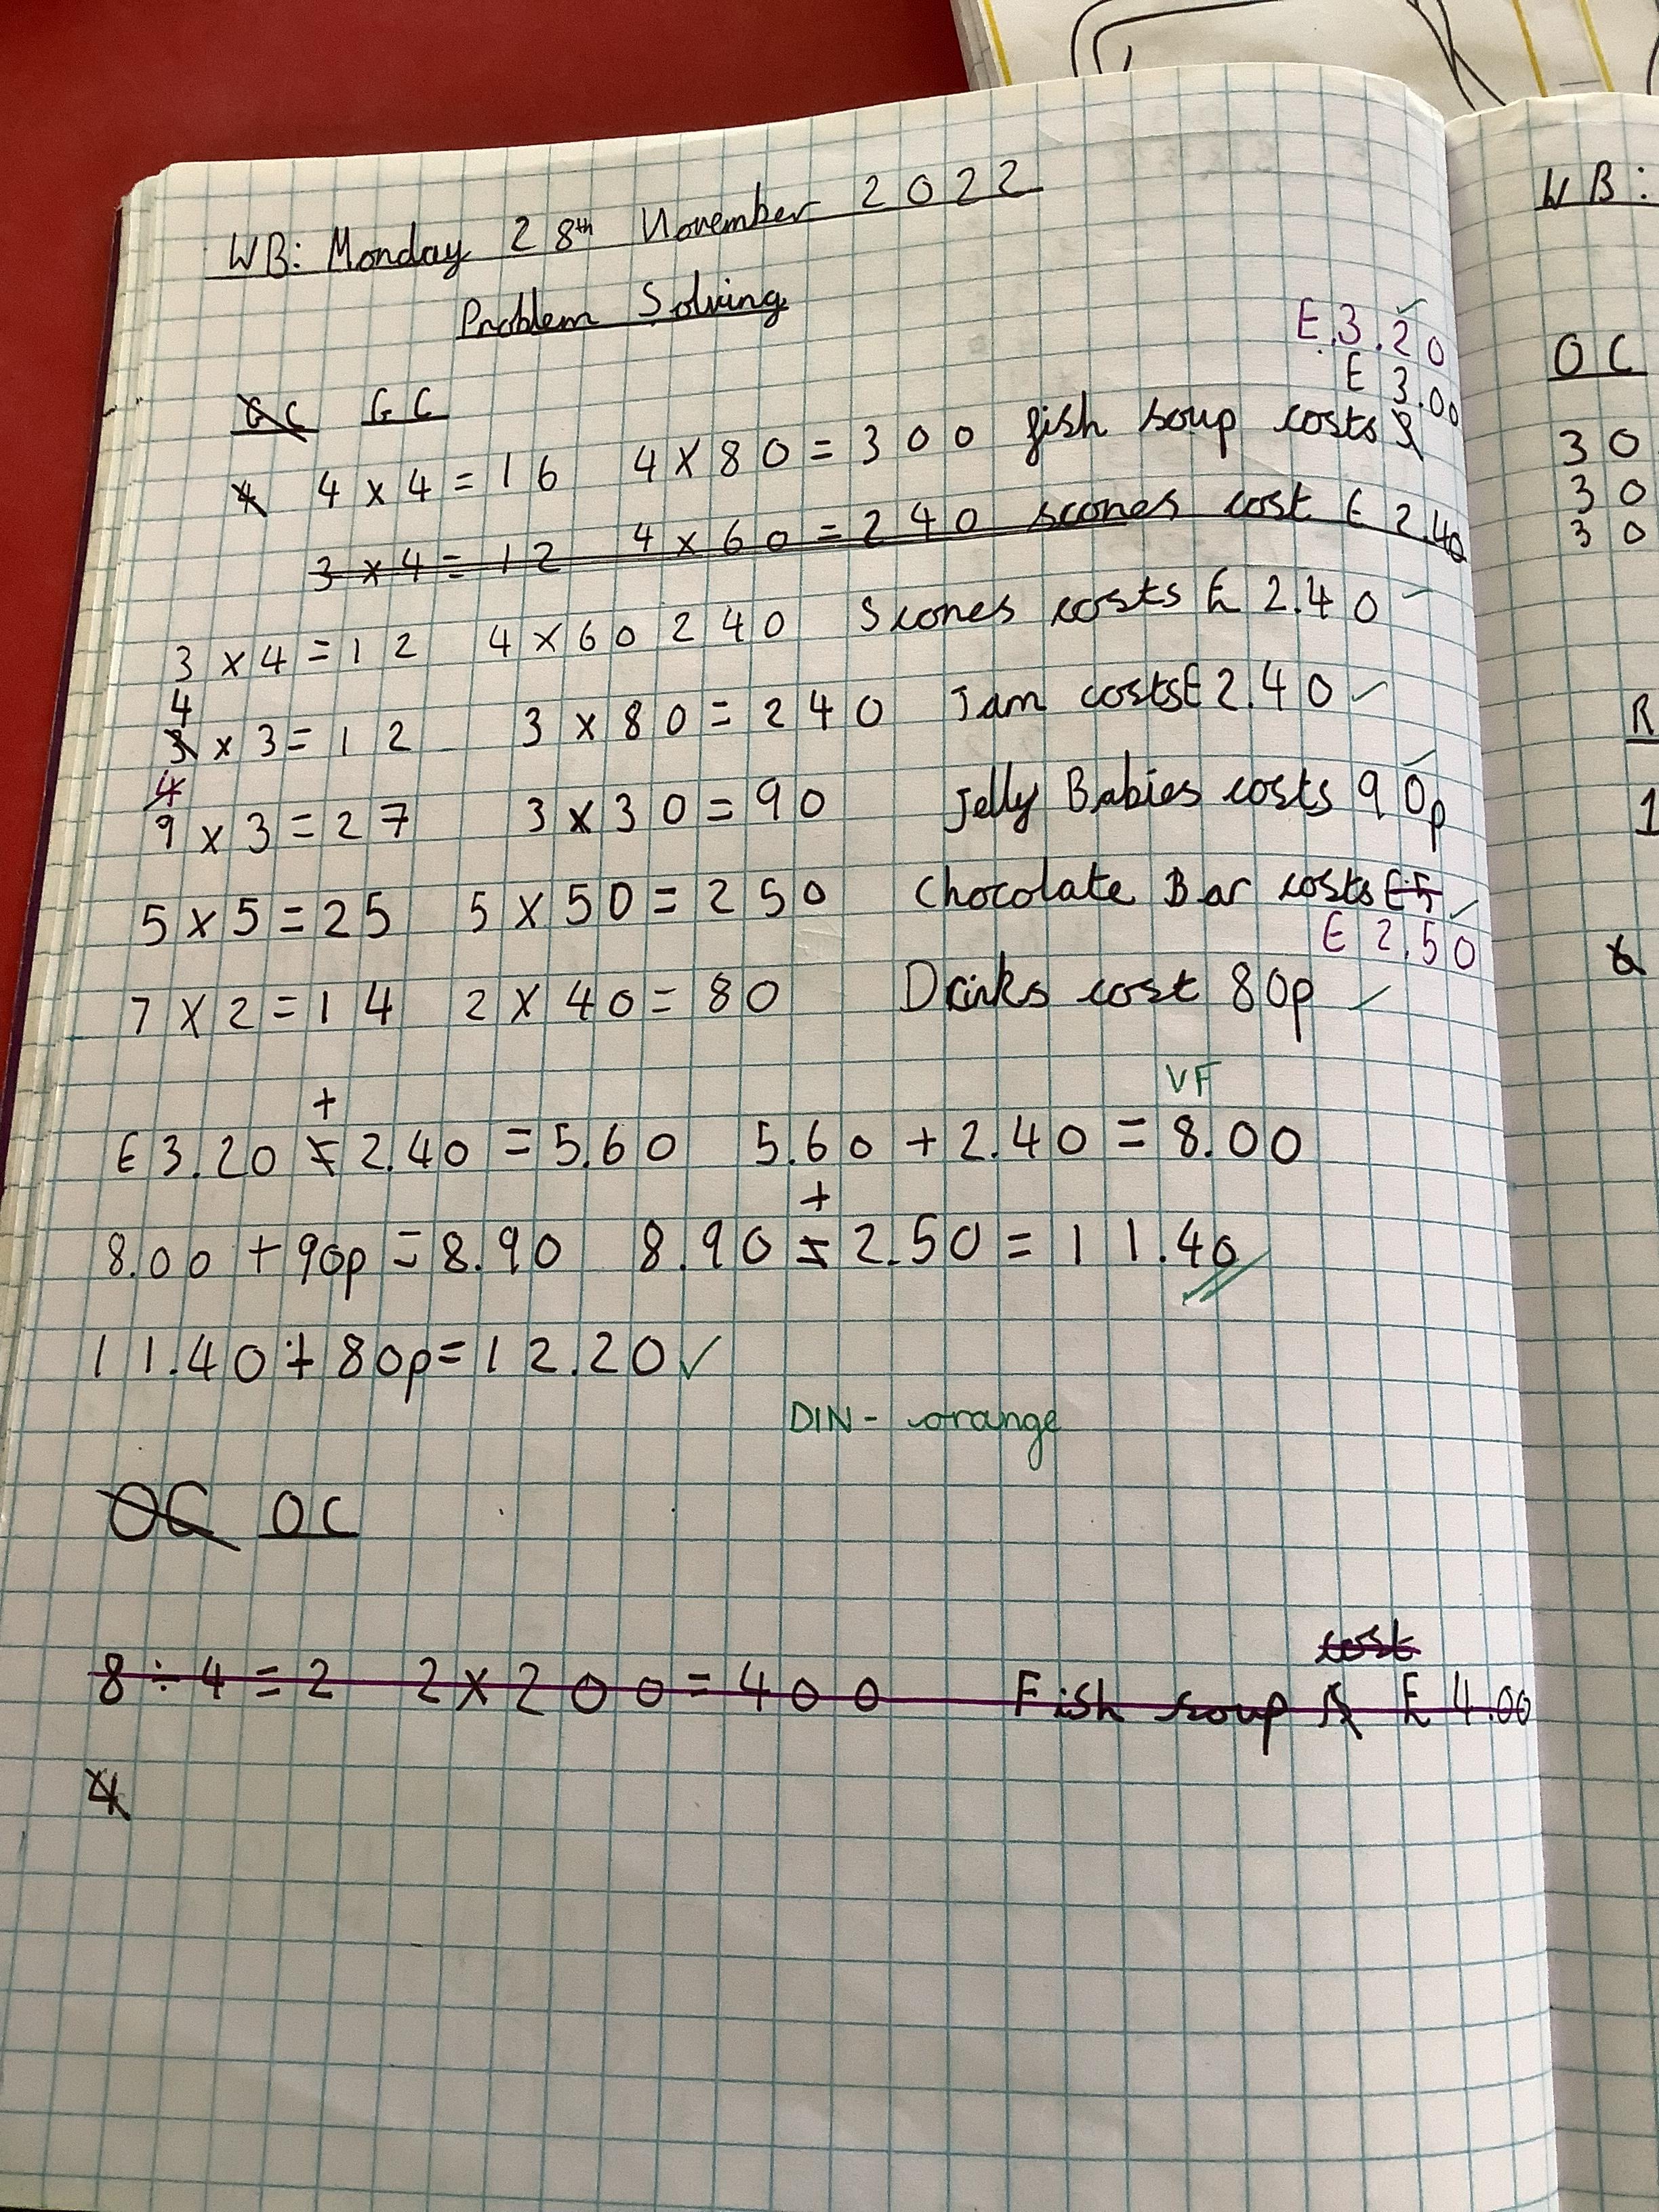 WB: Monday 28th November 2022
Problem Solving
E.3.20
GC GC E 3.00
4 4 x 4 = 16 4 x 80 = 300 fish soup costs
3 x 4 = 12 4 x 60 = 240 scones cost £ 2.40
3 x 4 = 12 4 x 60 240 Scones costs £ 2.40
4
3 x 3 = 12 3 x 80 = 240 Jam costs £ 2.40
4
9 x 3 = 27 3 x 30 = 90 Jelly Babies costs 90p
5 x 5 = 25 5 x 50 = 250 Chocolate Bar costs £5
£ 2.50
7 x 2 = 14 2 x 40 = 80 Drinks cost 80p
VF
+
£3.20 = 2.40 = 5.60 5.60 + 2.40 = 8.00
+
8.00 + 90p = 8.90 8.90 = 2.50 = 11.40
11.40 + 80p = 12.20
DIN - orange
OC OC
cost
8 ÷ 4 = 2 2 x 200 = 400 Fish soup £ 4.00
4
WB:
OC
30
30
30
R
1